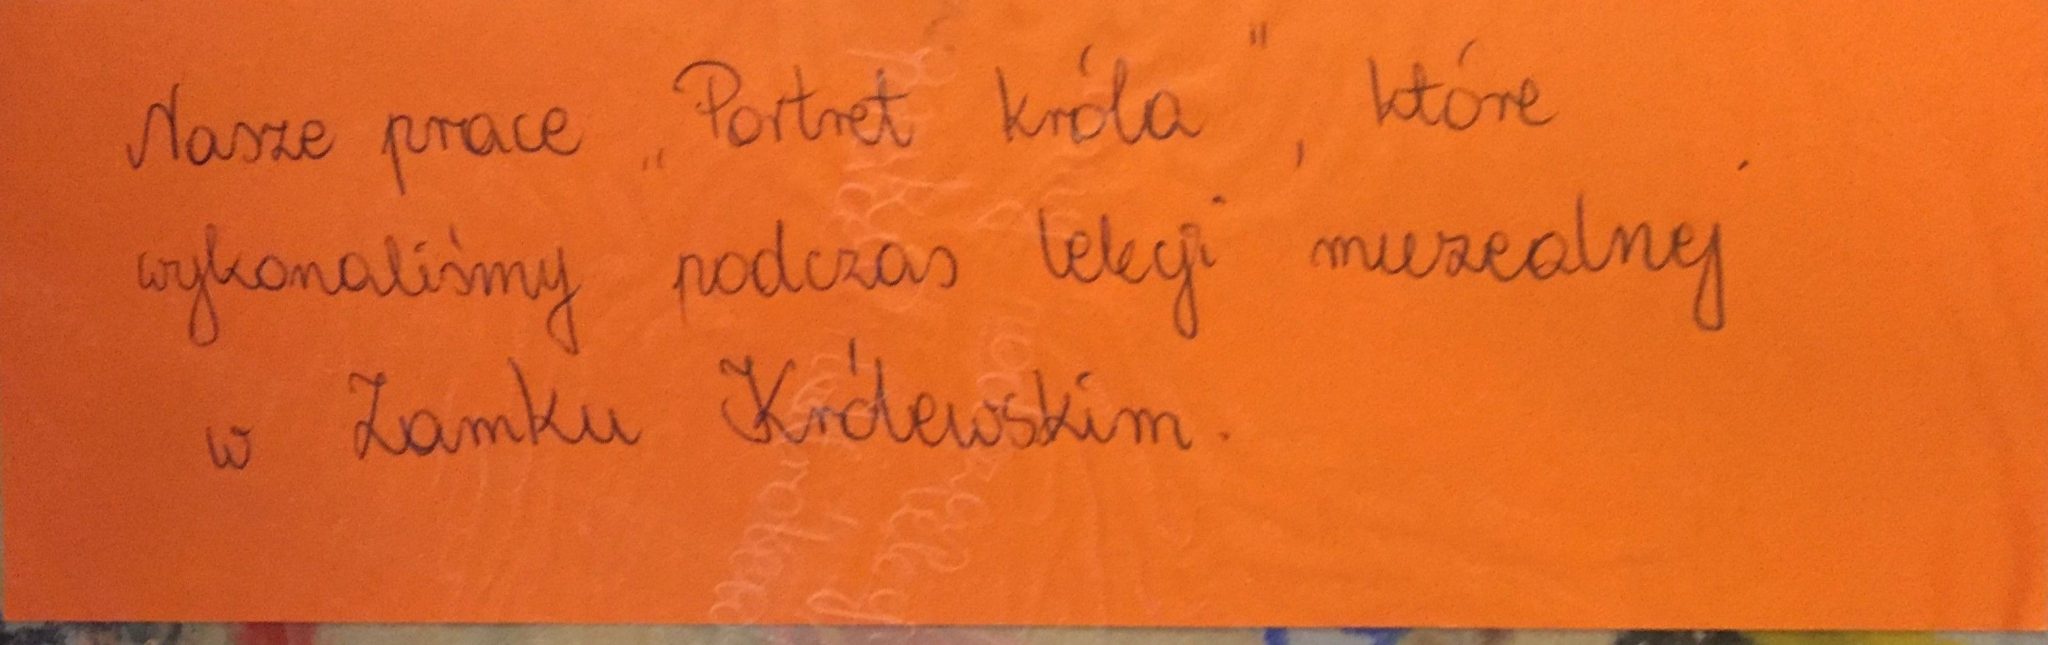 Nasze prace „Portret króla", które
wykonaliśmy podczas lekcji muzealnej
w Zamku Królewskim.